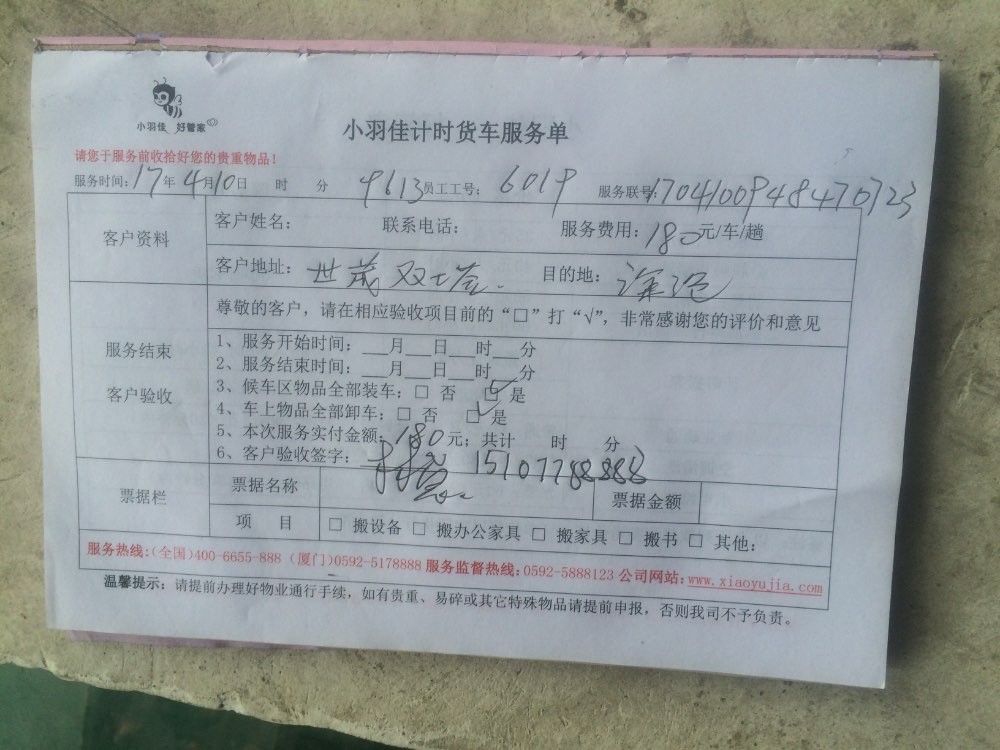 小羽佳 好管家
小羽佳计时货车服务单
请您于服务前收拾好您的贵重物品！
服务时间：17年4月10日 时 分 9613 员工工号：6019 服务联号：1704100948470723
客户资料
客户姓名： 联系电话： 服务费用：180元/车/趟
客户地址：世茂双塔. 目的地：
尊敬的客户，请在相应验收项目前的“□”打“√”，非常感谢您的评价和意见
服务结束
客户验收
1、服务开始时间：___月___日___时___分
2、服务结束时间：___月___日___时___分
3、候车区物品全部装车：□ 否 ☑ 是
4、车上物品全部卸车：□ 否 ☑ 是
5、本次服务实付金额：180元；共计 时 分
6、客户验收签字： 15107788888
票据栏
票据名称 票据金额
项 目 □ 搬设备 □ 搬办公家具 □ 搬家具 □ 搬书 □ 其他：
服务热线:(全国)400-6655-888 (厦门)0592-5178888 服务监督热线:0592-5888123 公司网站:www.xiaoyujia.com
温馨提示：请提前办理好物业通行手续，如有贵重、易碎或其它特殊物品请提前申报，否则我司不予负责。